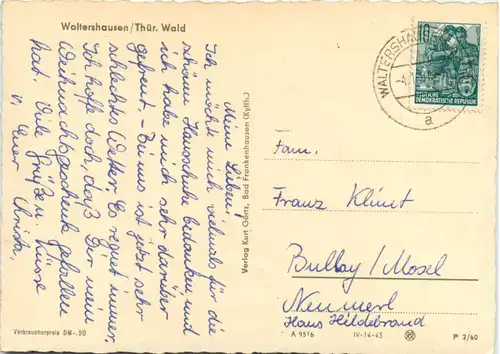 Waltershausen/Thür. Wald
Meine Lieben!
Ich möchte mich vielmals für die
schönen Hausschuhe bedanken und
ich habe mich sehr darüber
gefreut. – Bei uns ist jetzt sehr
schlechtes Wetter. Es regnet immer.
Ich hoffe doch, daß Euer mein
Weihnachtsgeschenk gefallen
hat. Viele Grüße u. Küsse
v. Euer Christa.
Verbraucherpreis DM -.20
Verlag Kurt Gentz, Bad Frankenhausen (Kyffh.)
WALTERSHAU
a
10
DEUTSCHE
DEMOKRATISCHE REPUBLIK
Fam.
Franz Klimt
Bullay/Mosel
Neumerl
Haus Hildebrand
A 9516
IV-14-45
P 2/60